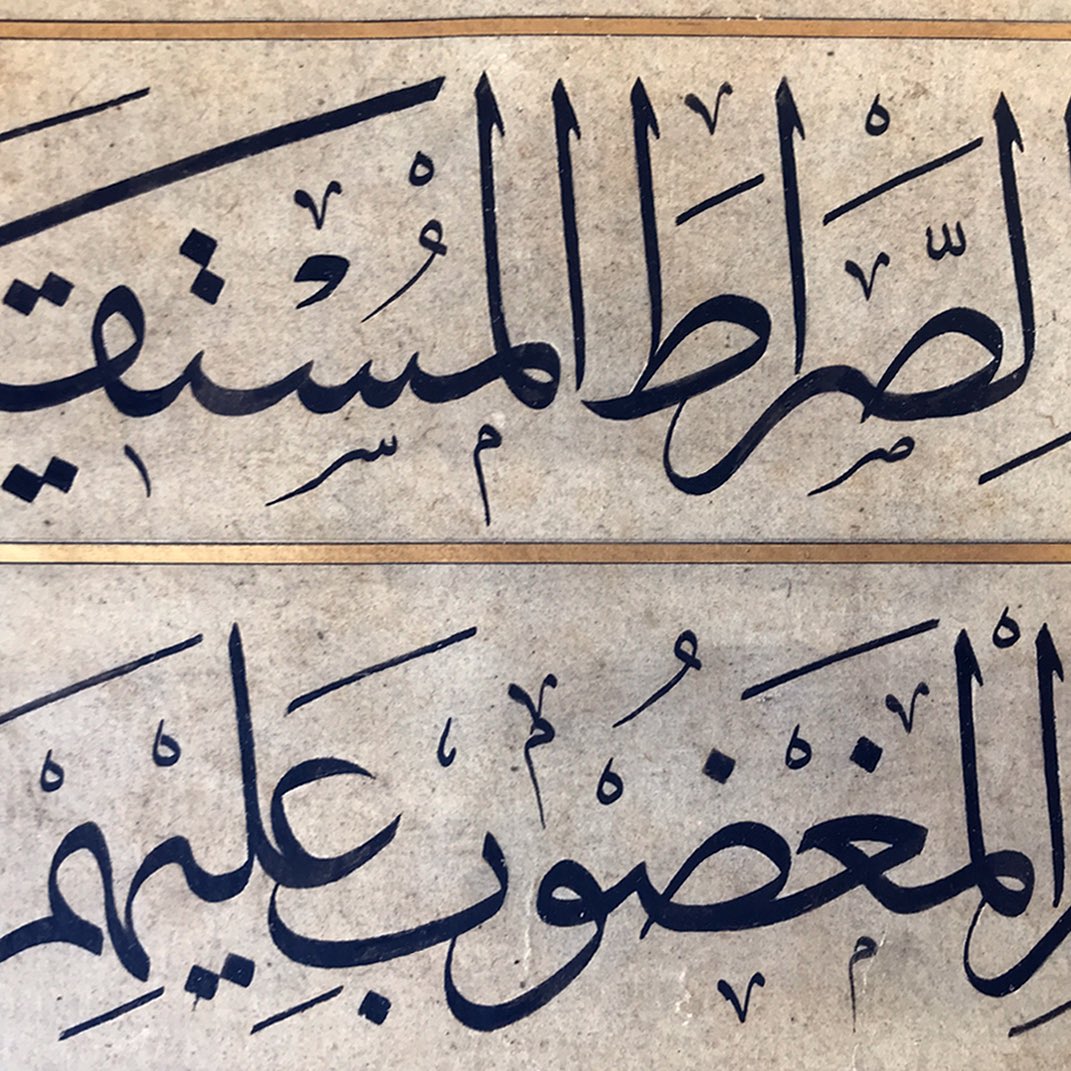 الصِّرَاطَ الْمُسْتَقِيـ
ـرِ الْمَغْضُوبِ عَلَيْهِمْ